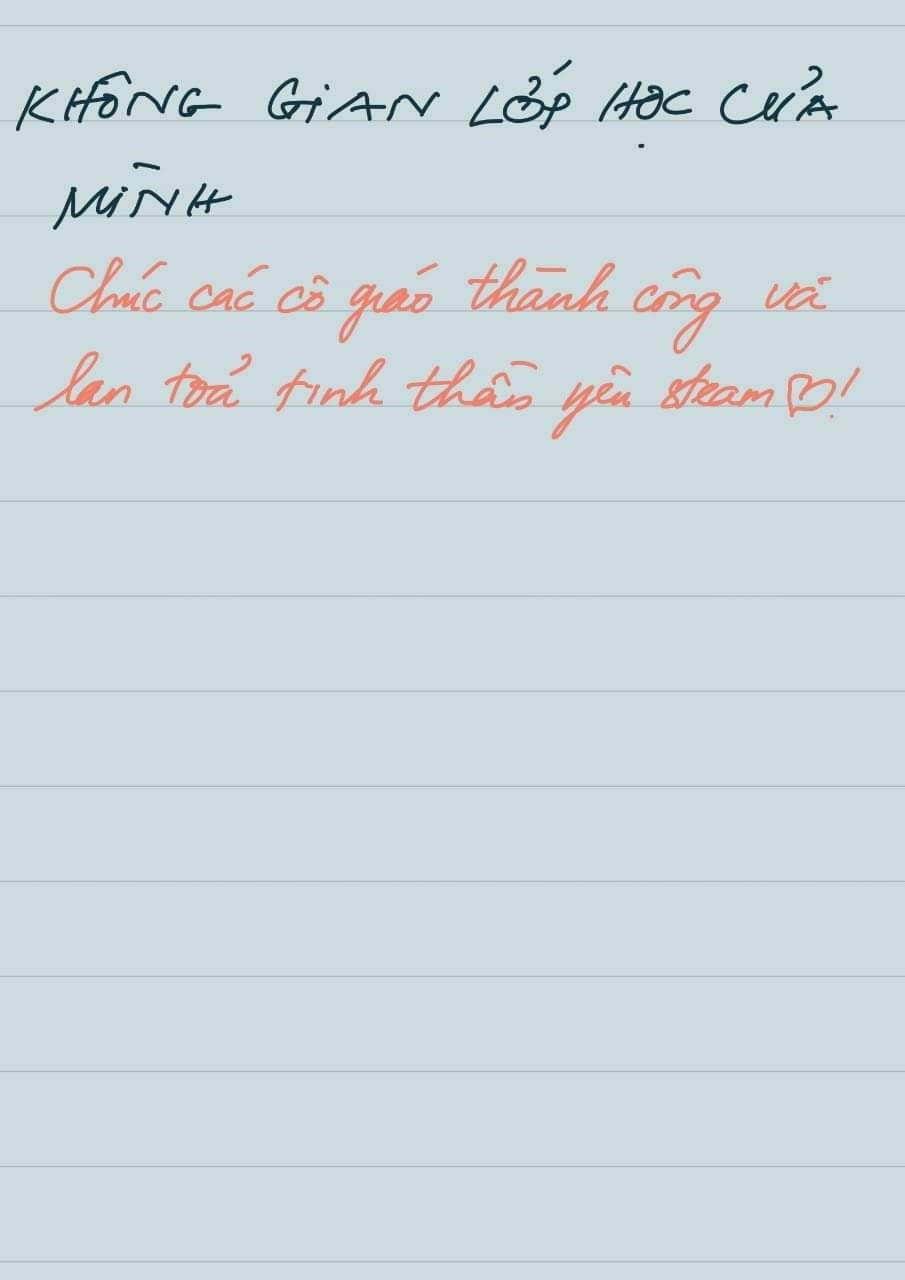 KHÔNG GIAN LỚP HỌC CỦA
MÌNH
Chúc các cô giáo thành công và
lan toả tinh thần yêu steam♡!